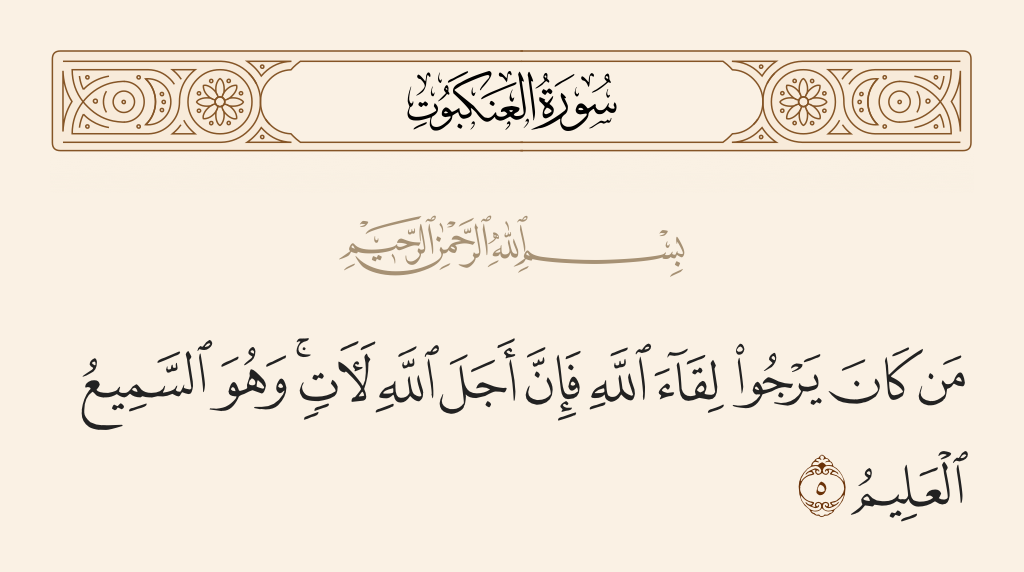 سُورَةُ الْعَنكَبُوتِ
بِسْمِ ٱللَّهِ ٱلرَّحْمَٰنِ ٱلرَّحِيمِ
مَن كَانَ يَرْجُوا۟ لِقَآءَ ٱللَّهِ فَإِنَّ أَجَلَ ٱللَّهِ لَـَٔاتٍۚ وَهُوَ ٱلسَّمِيعُ
ٱلْعَلِيمُ ٥